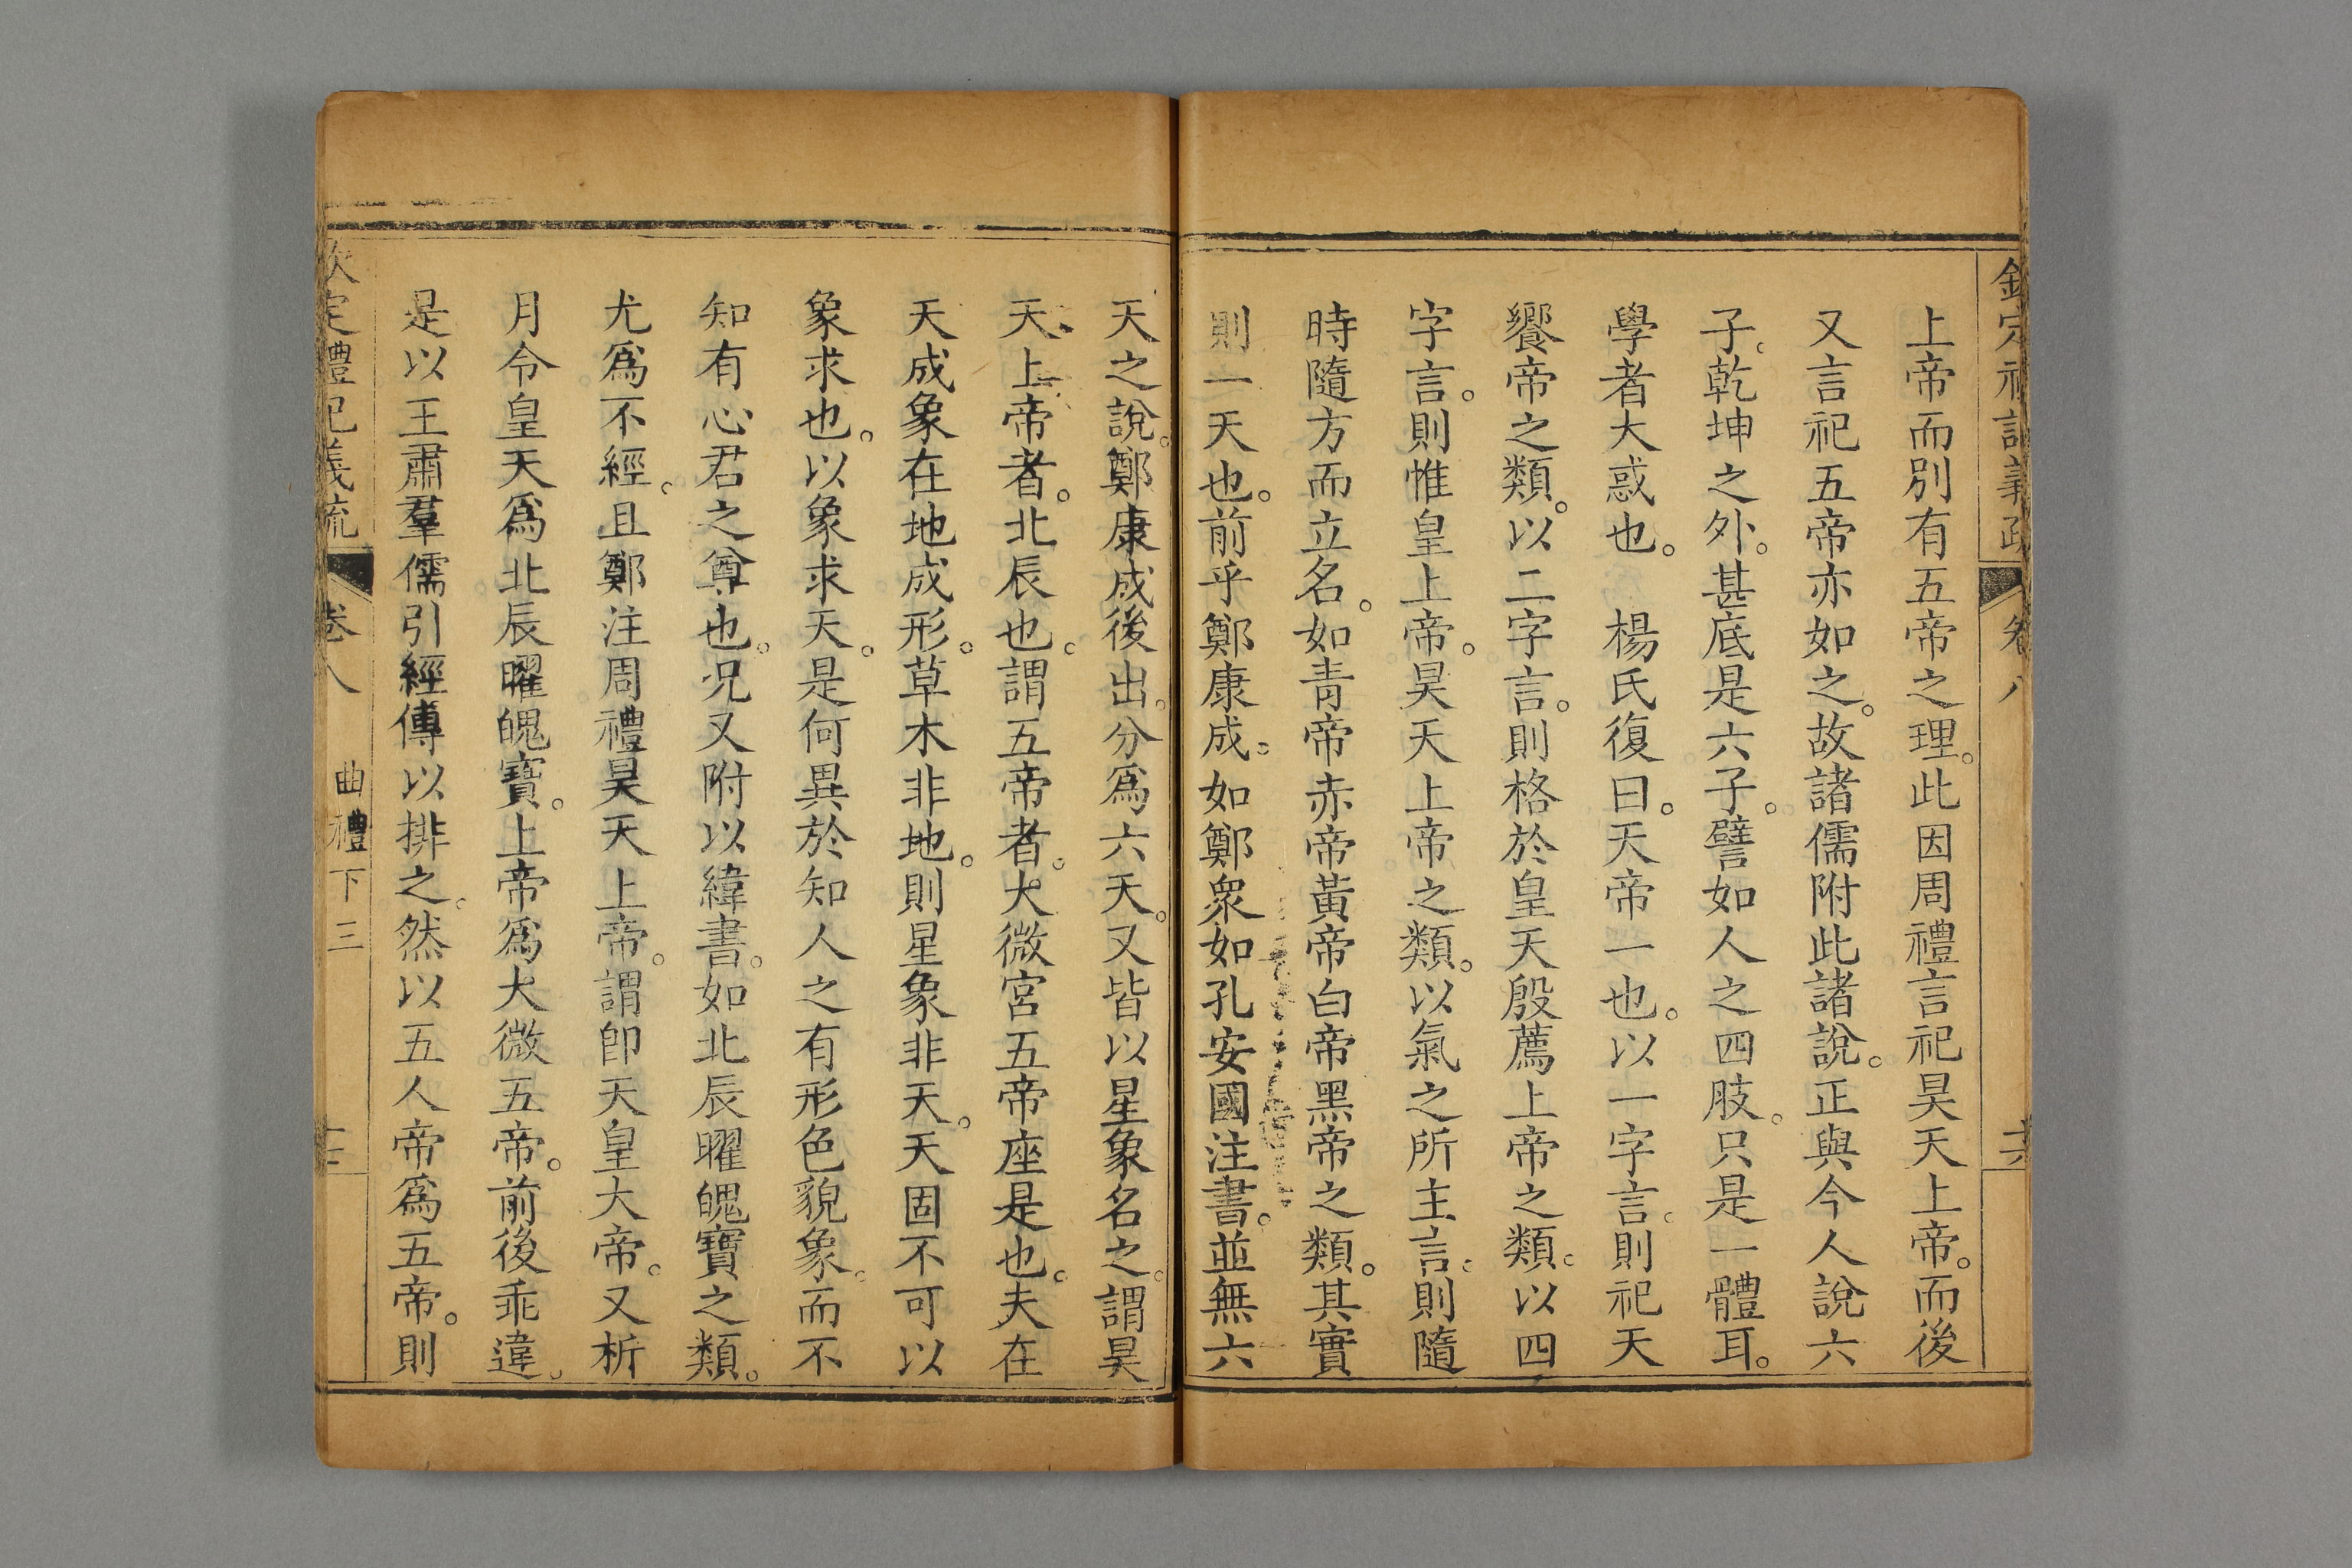 上帝而別有五帝之理。此因周禮言祀昊天上帝。而後
又言祀五帝亦如之。故諸儒附此諸說。正與今人說六
子。乾坤之外。甚底是六子。譬如人之四肢。只是一體耳。
學者大惑也。　楊氏復曰。天帝一也。以一字言。則祀天
饗帝之類。以二字言。則格於皇天殷薦上帝之類。以四
字言。則惟皇上帝。昊天上帝之類。以氣之所主言。則隨
時隨方而立名。如青帝赤帝黃帝白帝黑帝之類。其實
則一天也。前乎鄭康成。如鄭眾如孔安國注書。並無六
天之說。鄭康成後出。分爲六天。又皆以星象名之。謂昊
天上帝者。北辰也。謂五帝者。大微宮五帝座是也。夫在
天成象在地成形。草木非地。則星象非天。天固不可以
象求也。以象求天。是何異於知人之有形色貌象。而不
知有心君之尊也。況又附以緯書。如北辰曜魄寶之類。
尤爲不經。且鄭注周禮昊天上帝。謂卽天皇大帝。又析
月令皇天爲北辰曜魄寶。上帝爲大微五帝。前後乖違。
是以王肅羣儒引經傳以排之。然以五人帝爲五帝。則
欽定禮記義疏　卷八　曲禮下三